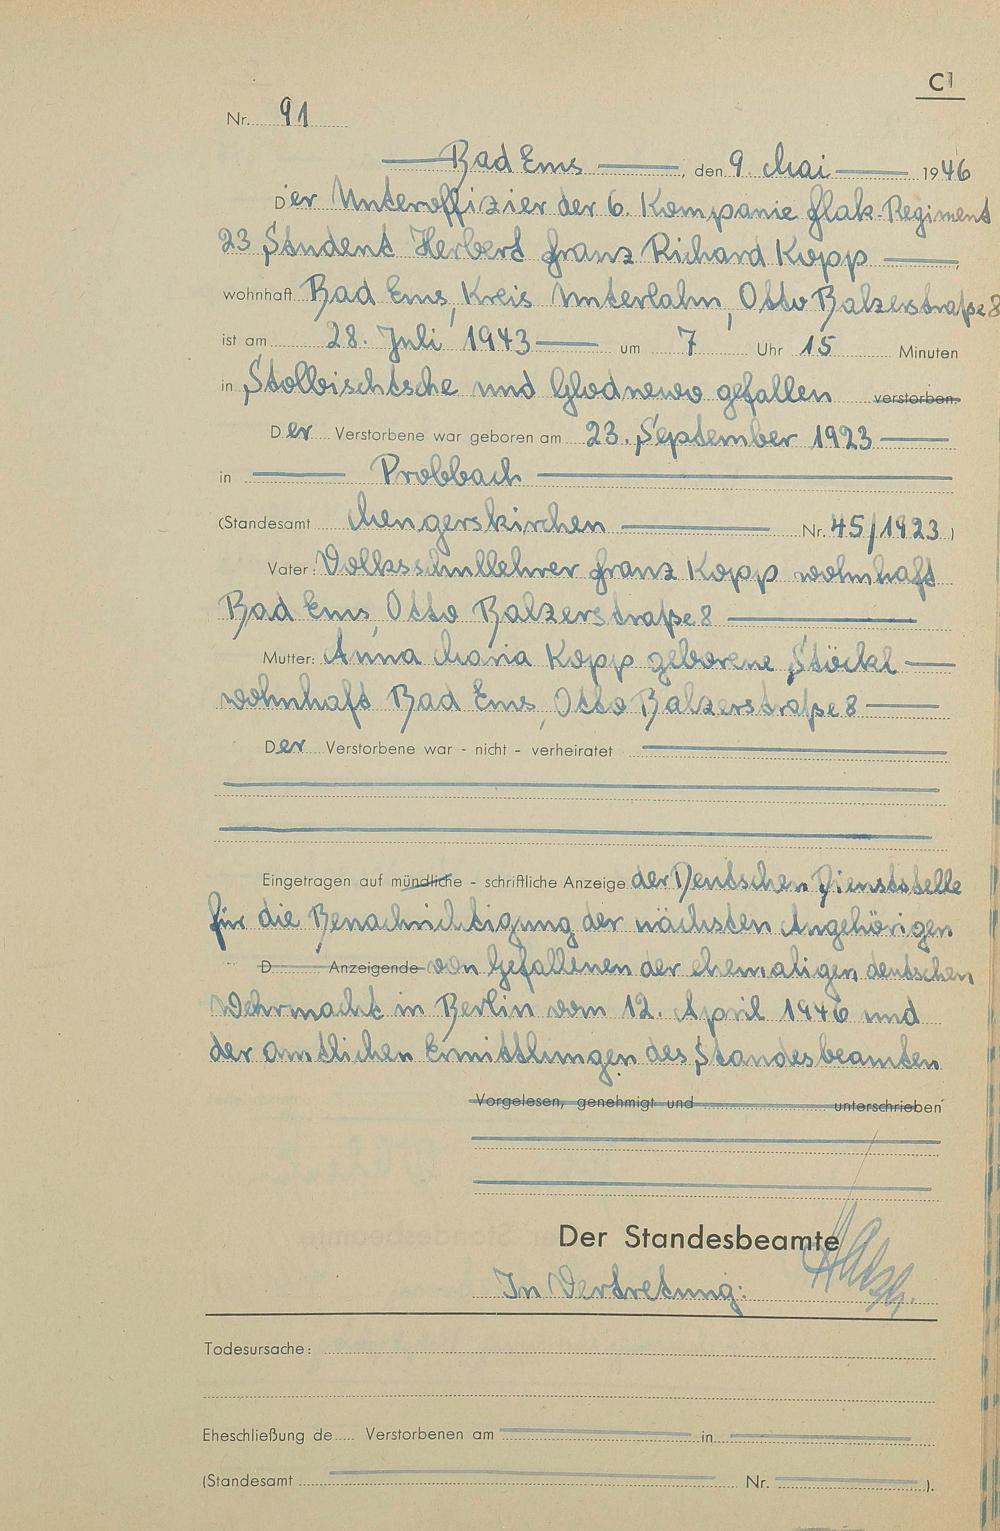 C1
Nr. 91
Bad Ems, den 9. Mai 1946
Der Unteroffizier der 6. Kompanie Flak-Regiment
23 Student Herbert Franz Richard Kopp,
wohnhaft Bad Ems, Kreis Unterlahn, Otto Balzerstraße 8
ist am 28. Juli 1943 um 7 Uhr 15 Minuten
in Stolbischtsche und Glodnewo gefallen verstorben.
Der Verstorbene war geboren am 23. September 1923
in Probbach
(Standesamt Mengerskirchen Nr. 45/1923)
Vater: Volksschullehrer Franz Kopp wohnhaft
Bad Ems, Otto Balzerstraße 8
Mutter: Anna Maria Kopp geborene Stöckl
wohnhaft Bad Ems, Otto Balzerstraße 8
Der Verstorbene war - nicht - verheiratet
Eingetragen auf mündliche - schriftliche Anzeige der Deutschen Dienststelle
für die Benachrichtigung der nächsten Angehörigen
D Anzeigende von Gefallenen der ehemaligen deutschen
Wehrmacht in Berlin vom 12. April 1946 und
der amtlichen Ermittlungen des Standesbeamten
Vorgelesen, genehmigt und unterschrieben
Der Standesbeamte
In Vertretung:
Todesursache:
Eheschließung de Verstorbenen am in
(Standesamt Nr. ).